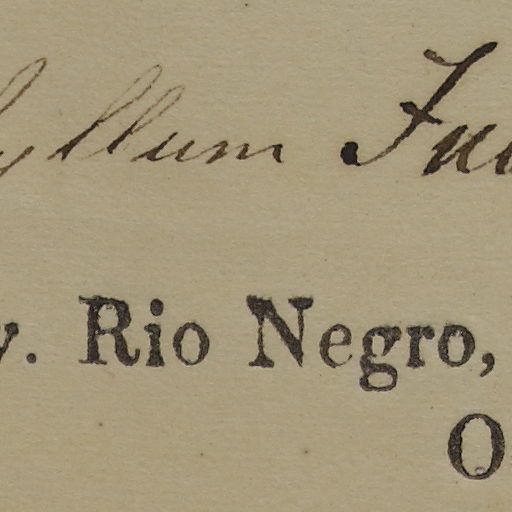 yllum Ju
y. Rio Negro,
O